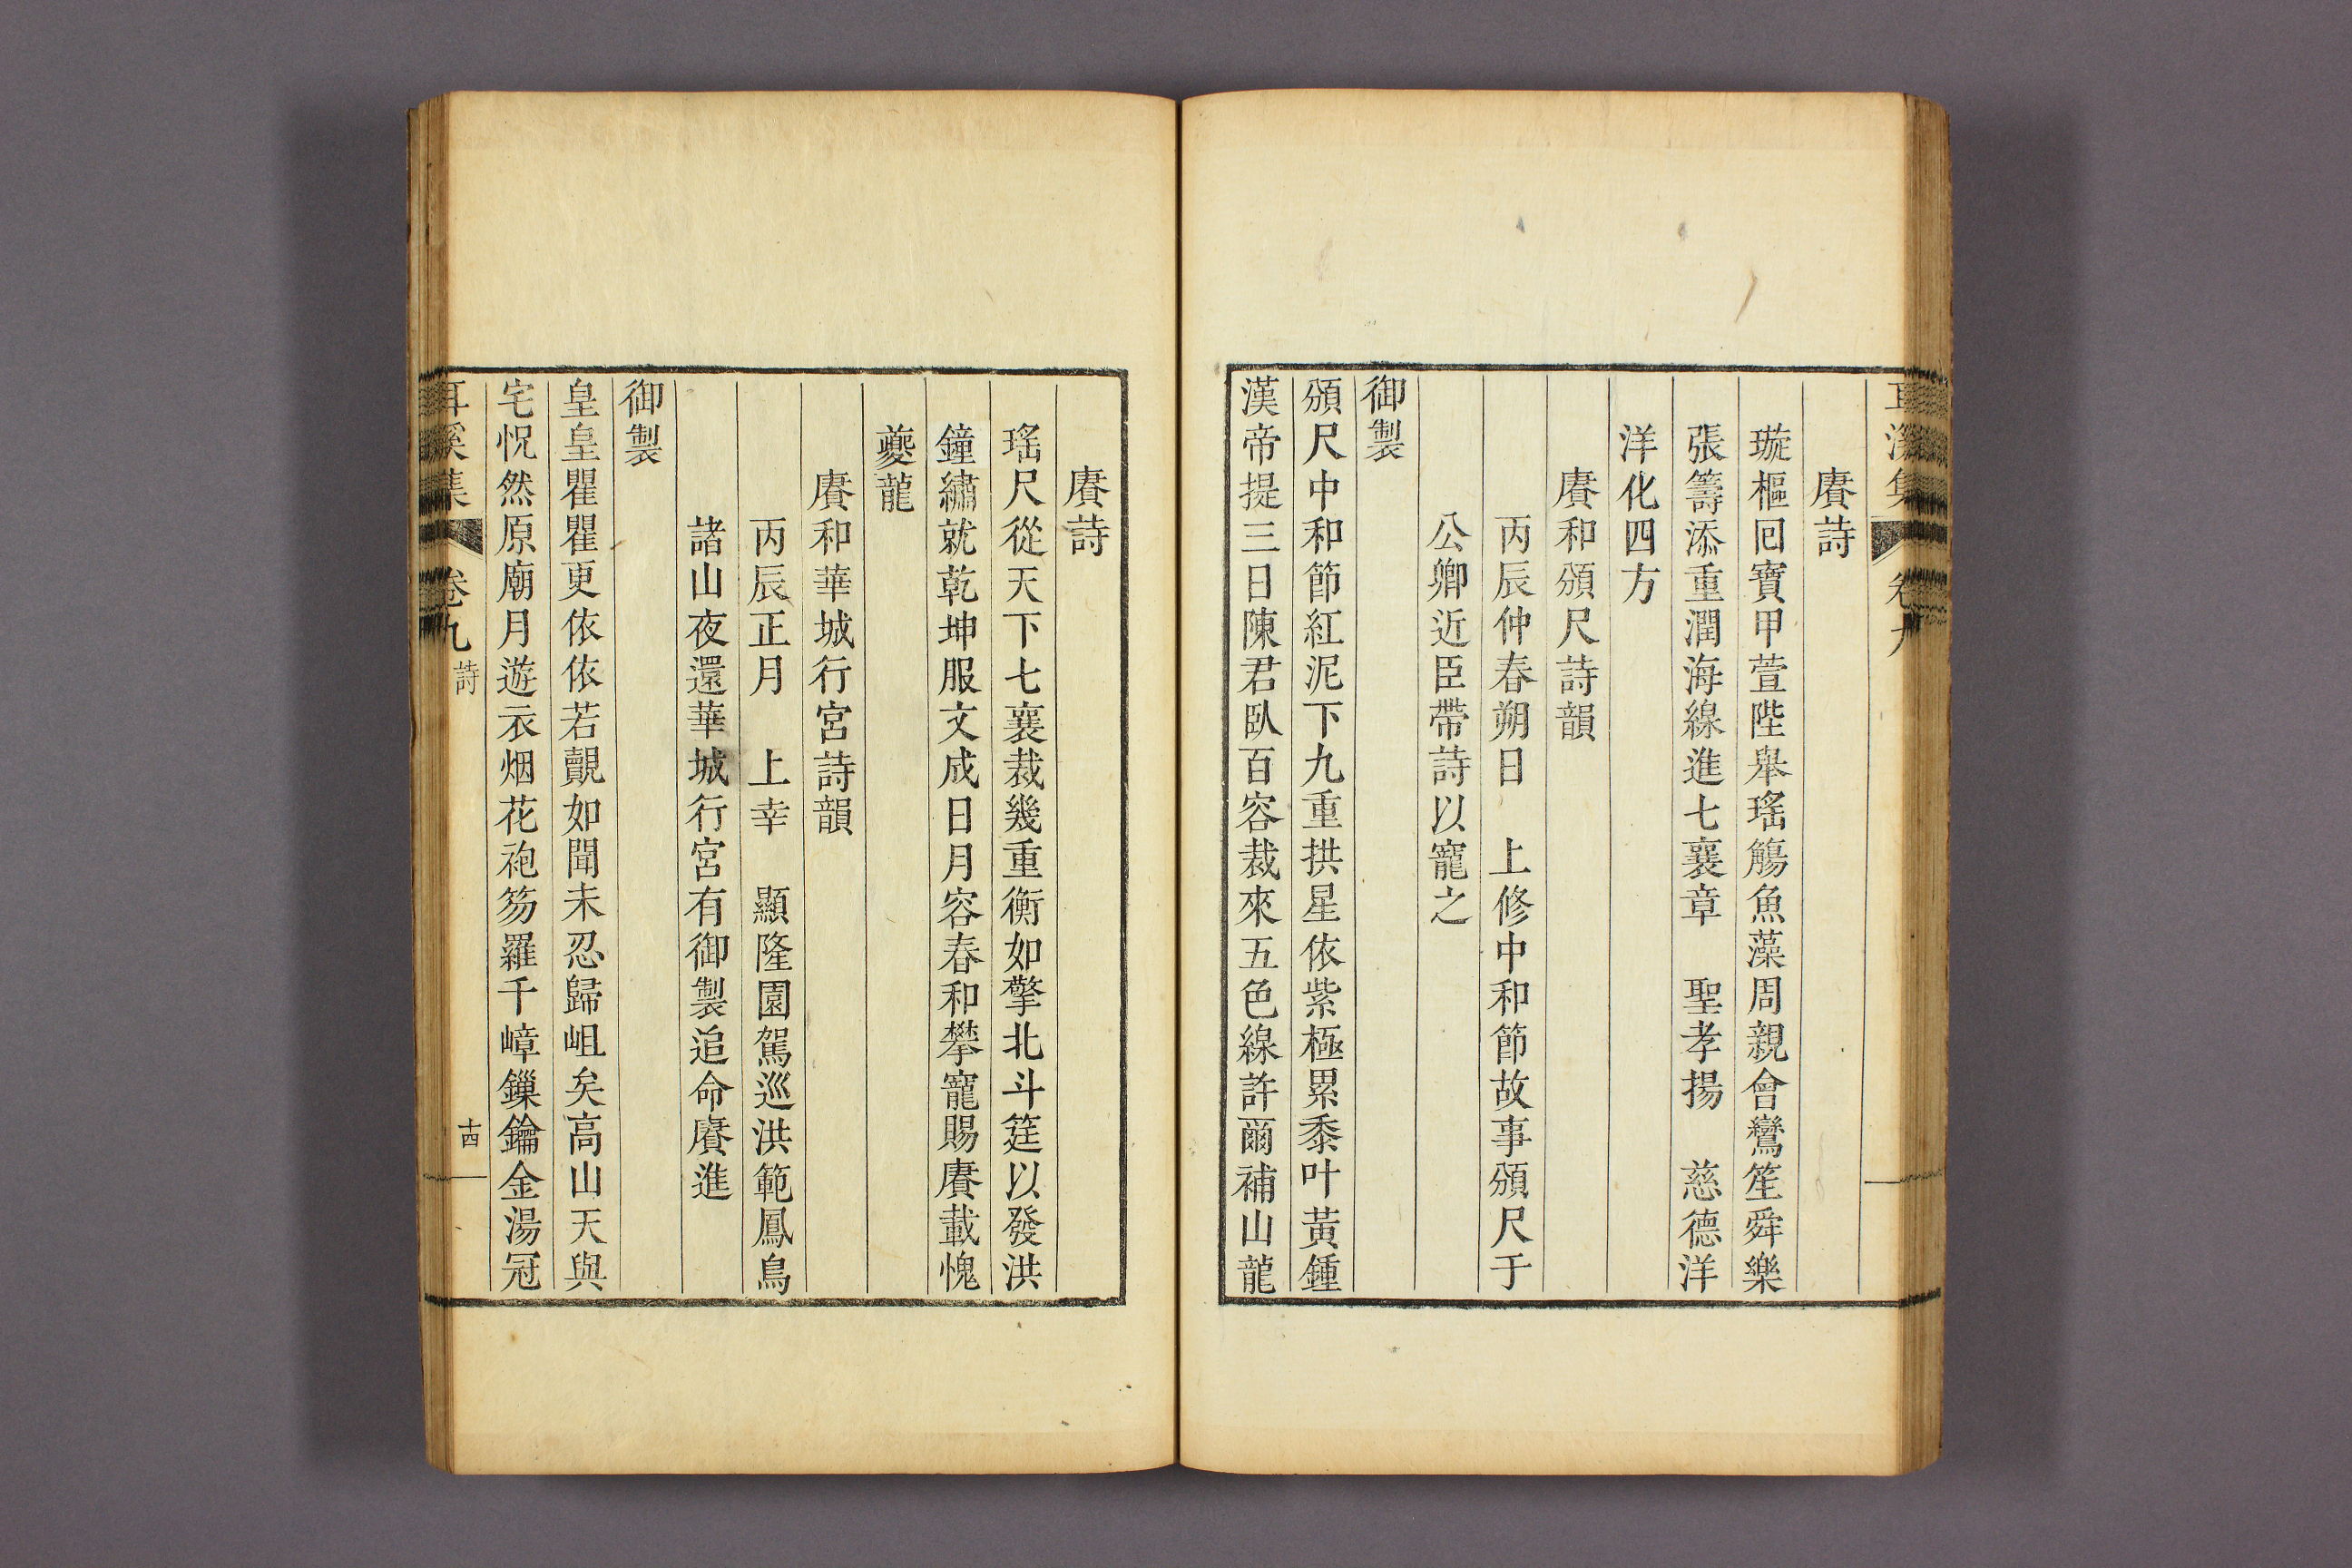 耳溪集 卷九
賡詩
璇樞回寶甲萱陛舉瑤觴魚藻周親會鸞笙舜樂
張籌添重潤海線進七襄章 聖孝揚 慈德洋
洋化四方
賡和頒尺詩韻
丙辰仲春朔日 上修中和節故事頒尺于
公卿近臣帶詩以寵之
御製
頒尺中和節紅泥下九重拱星依紫極累黍叶黃鍾
漢帝提三日陳君臥百容裁來五色線許爾補山龍
賡詩
瑤尺從天下七襄裁幾重衡如擎北斗筳以發洪
鐘繡就乾坤服文成日月容春和攀寵賜賡載愧
夔龍
賡和華城行宮詩韻
丙辰正月 上幸 顯隆園駕巡洪範鳳鳥
諸山夜還華城行宮有御製追命賡進
御製
皇皇瞿瞿更依依若覿如聞未忍歸岨矣高山天與
宅怳然原廟月遊衣烟花袍笏羅千嶂鏁鑰金湯冠
耳溪集 卷九 詩 十四